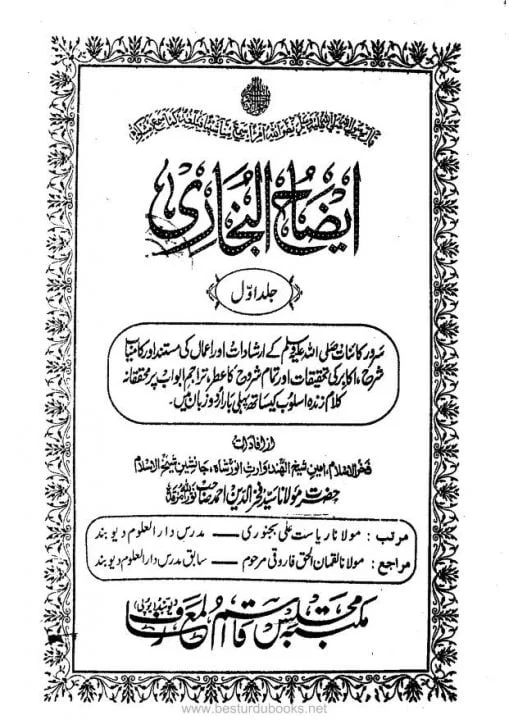 قال رسول الله صلى الله عليه وسلم نضر الله امرأ سمع منا شيئا فبلغه كما سمعه
ایضاح البخاری
جلد اوّل
سرور کائنات صلی اللہ علیہ وسلم کے ارشادات اور اعمال کی مستند اور کامیاب
شرح، اکابر کی تحقیقات اور تمام شروح کا عطر، تراجم ابواب پر محققانہ
کلام زندہ اسلوب کیساتھ پہلی بار اردو زبان میں۔
از افادات
فخر الاسلام، امین شیخ الہند وارث انور شاہ، جانشین شیخ الاسلام
حضرت مولانا سید فخر الدین احمد صاحب نور اللہ مرقدہ
مرتب : مولانا ریاست علی بجنوری ــــ مدرس دار العلوم دیوبند
مراجع : مولانا لقمان الحق فاروقی مرحوم ــــ سابق مدرس دار العلوم دیوبند
مکتبہ مجلس قاسم المعارف
www.besturdubooks.net